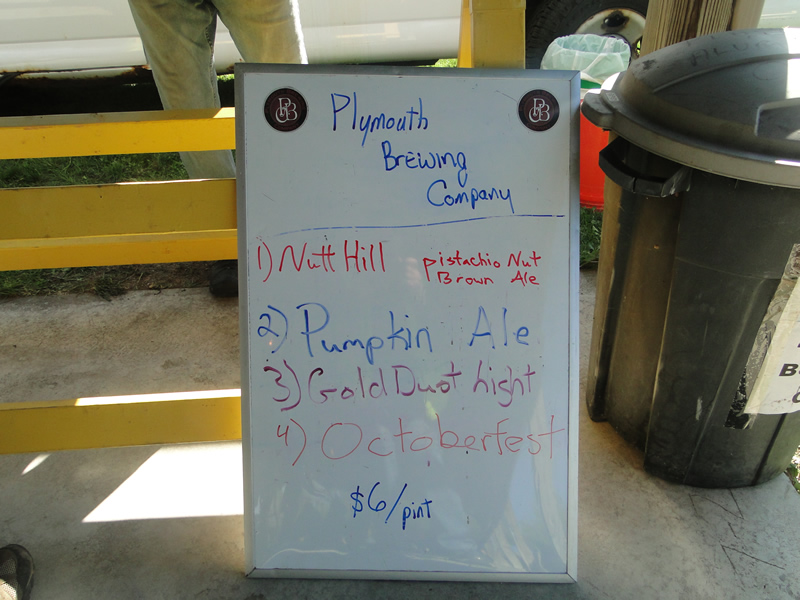 PBC
PBC
Plymouth
Brewing
Company
1) Nutt Hill pistachio Nut
Brown Ale
2) Pumpkin Ale
3) Gold Dust Light
4) Octoberfest
$6/pint